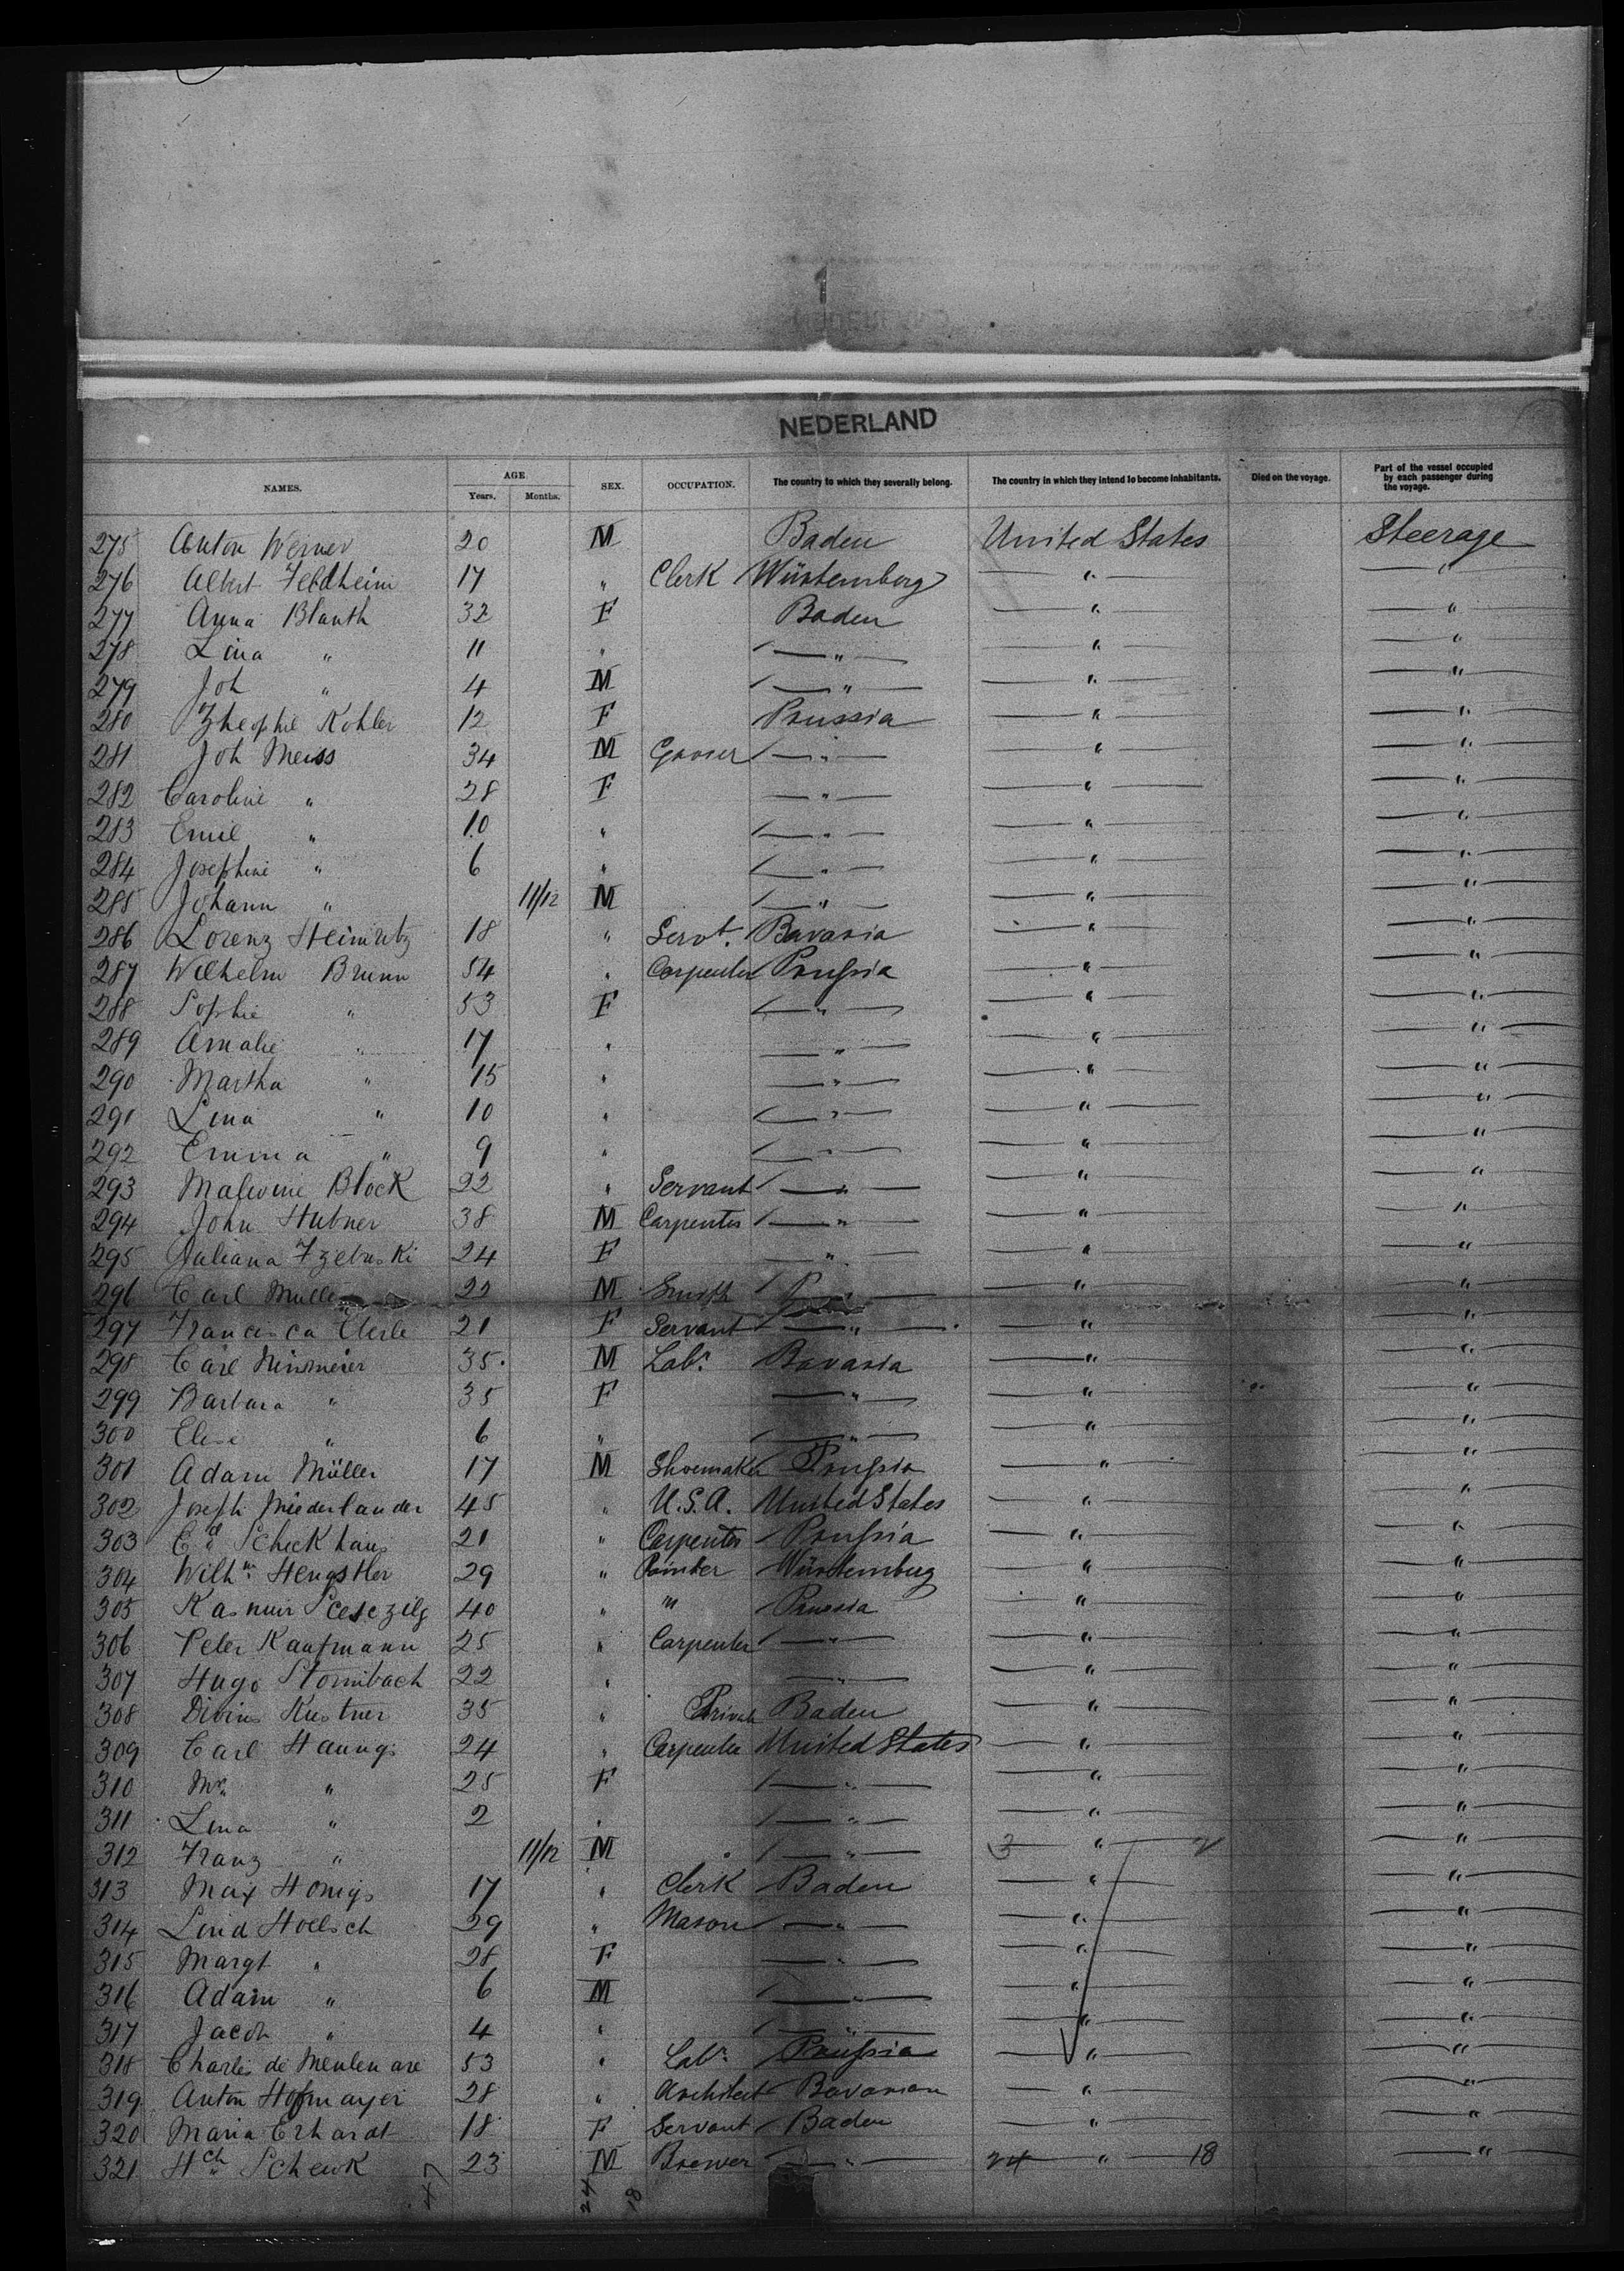 NEDERLAND
NAMES. AGE. Years. Months. SEX. OCCUPATION. The country to which they severally belong. The country in which they intend to become inhabitants. Died on the voyage. Part of the vessel occupied by each passenger during the voyage.
275 Anton Werner 20 M Baden United States Steerage
276 Albert Feldheim 17 " Clerk Würtemberg " "
277 Anna Blanth 32 F Baden " "
278 Lina " 11 " " " "
279 Joh " 4 M " " "
280 Kohler 12 F Prussia " "
281 Joh Meiss 34 M " " "
282 Caroline " 28 F " " "
283 Emil " 10 " " " "
284 Josephine " 6 " " " "
285 Johann " 11/12 M " " "
286 Lorenz 18 " Servt. Bavaria " "
287 Wilhelm Brunn 54 " Carpenter Prussia " "
288 Sophie " 53 F " " "
289 Amalie " 17 " " " "
290 Martha " 15 " " " "
291 Lina " 10 " " " "
292 Emma " 9 " " " "
293 Block 22 " Servant " " "
294 John Hubner 38 M Carpenter " " "
295 Juliana 24 F " " "
296 Carl Muller 22 M Smith " "
297 Francisca Eberle 21 F Servant " " "
298 Carl 35 M Labr. Bavaria " "
299 Barbara " 35 F " " "
300 Elise " 6 " " " "
301 Adam Müller 17 M Shoemaker Prussia " "
302 Joseph Niederlander 45 " U.S.A. United States " "
303 Ed Scheckhaus 21 " Carpenter Prussia " "
304 Wilhm. Hengstler 29 " Painter Würtemberg " "
305 Kasmir 40 " " Prussia " "
306 Peter Kaufmann 25 " Carpenter " " "
307 Hugo Stormbach 22 " " " "
308 Kustner 35 " Private Baden " "
309 Carl Haungs 24 " Carpenter United States " "
310 Mrs. " 25 F " " "
311 Lina " 2 " " " "
312 Franz " 11/12 M " 3 " 2 "
313 Max Honigs 17 " Clerk Baden " "
314 Hoelsch 29 " Mason " " "
315 Margt " 28 F " " "
316 Adam " 6 M " " "
317 Jacob " 4 " " " "
318 Charles de Meulenare 53 " Labr. Prussia " "
319 Anton Hofmayer 28 " Architect Bavarian " "
320 Maria Erhardt 18 F Servant Baden " "
321 Hch Schenk 23 M Brewer " 24 " 18 "
47 24 18